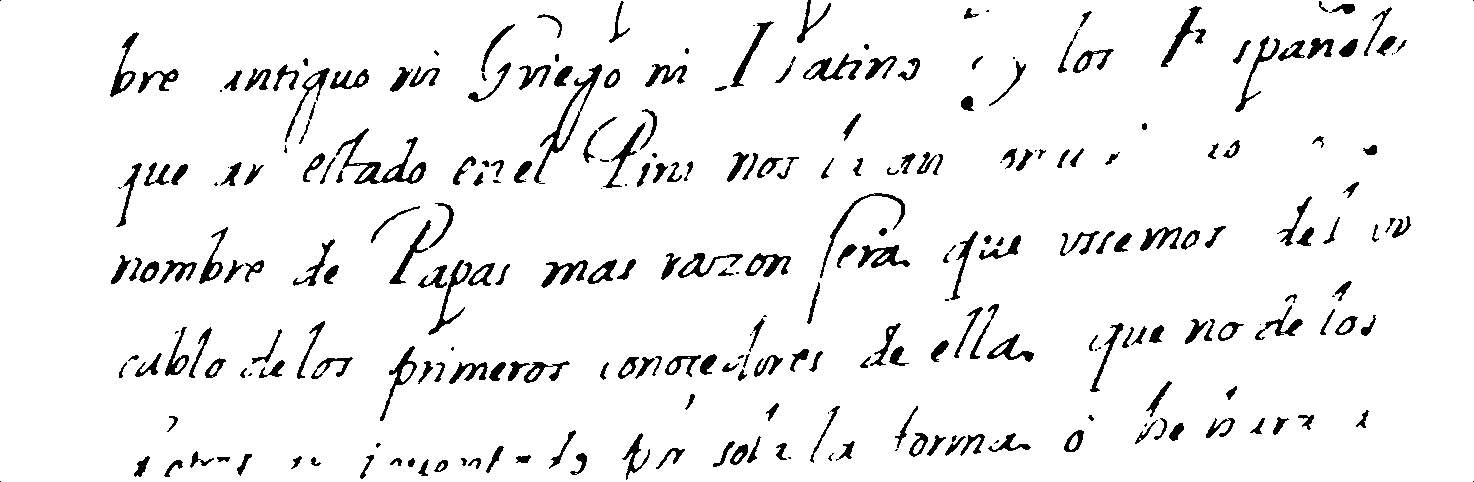 bre antiguo ni Griego ni Latino y los Españoles
que an estado en el Piru nos
nombre de Papas mas razon sera que usemos del vo
cablo de los primeros conocedores de ella que no de los
por sola la forma ó